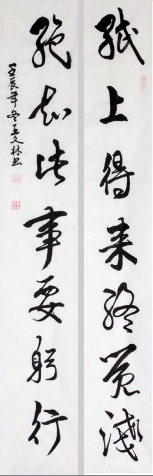 紙上得来終覺淺
絕知此事要躬行
壬辰年冬王文林书